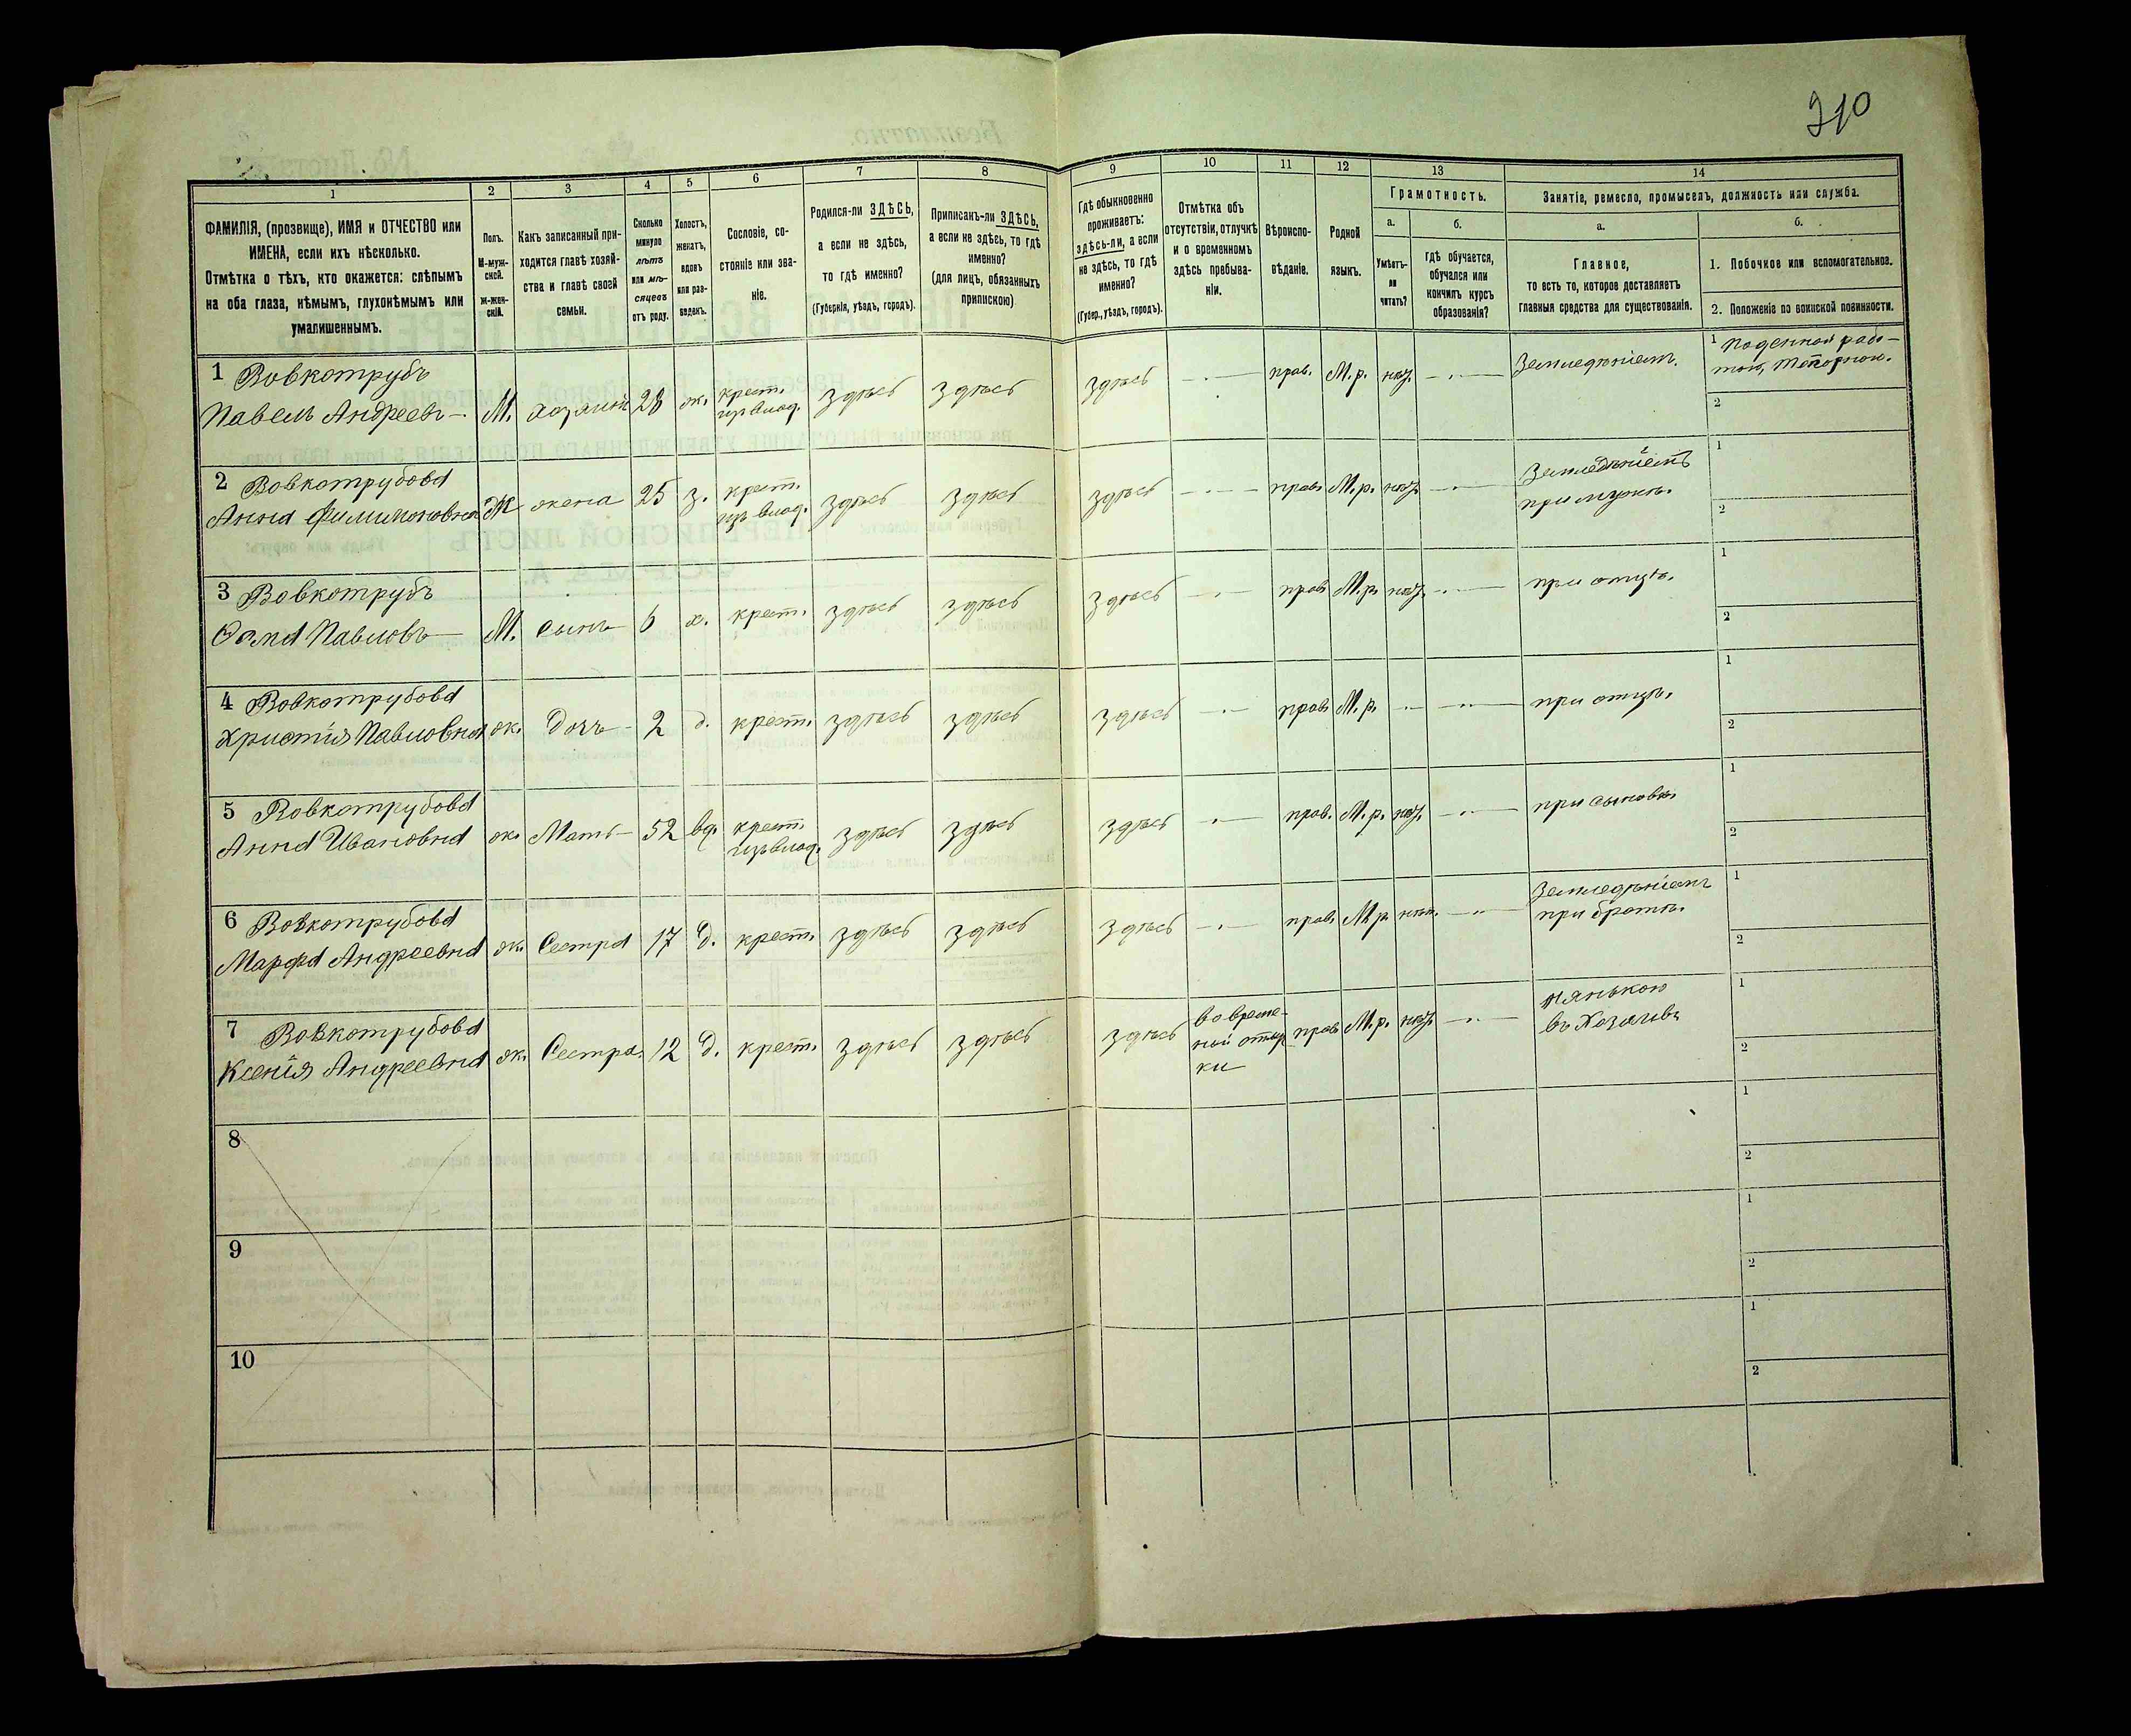 210
1
2
3
4
5
6
7
8
9
10
11
12
13
14
ФАМИЛІЯ, (прозвище), ИМЯ и ОТЧЕСТВО или
ИМЕНА, если ихъ нѣсколько.
Отмѣтка о тѣхъ, кто окажется: слѣпымъ
на оба глаза, нѣмымъ, глухонѣмымъ или
умалишеннымъ.
Полъ.
М-муж-
ской.
Ж-жен-
скій.
Какъ записанный при-
ходится главѣ хозяй-
ства и главѣ своей
семьи.
Сколько
минуло
лѣтъ
или мѣ-
сяцевъ
отъ роду.
Холостъ,
женатъ,
вдовъ
или раз-
веденъ.
Сословіе, со-
стояніе или зва-
ніе.
Родился-ли ЗДѢСЬ,
а если не здѣсь,
то гдѣ именно?
(Губернія, уѣздъ, городъ).
Приписанъ-ли ЗДѢСЬ,
а если не здѣсь, то гдѣ
именно?
(для лицъ, обязанныхъ
припискою)
Гдѣ обыкновенно
проживаетъ:
здѣсь-ли, а если
не здѣсь, то гдѣ
именно?
(Губер., уѣздъ, городъ).
Отмѣтка объ
отсутствіи, отлучкѣ
и о временномъ
здѣсь пребыва-
ніи.
Вѣроиспо-
вѣданіе.
Родной
языкъ.
Грамотность.
а.
б.
Умѣетъ-
ли
читать?
гдѣ обучается,
обучался или
кончилъ курсъ
образованія?
Занятіе, ремесло, промыселъ, должность или служба.
а.
б.
Главное,
то есть то, которое доставляетъ
главныя средства для существованія.
1. Побочное или вспомогательное.
2. Положеніе по воинской повинности.
1 Вовкотрубъ
Павелъ Андреевъ — М. хозяинъ 28 ж. крест. изъ влад. здѣсь здѣсь здѣсь — прав. М.р. нѣт. — Земледѣліемъ.
1 Поденной рабо-
тою,
2
2 Вовкотрубова
Анна Филимоновна Ж жена 25 з. крест. изъ влад. здѣсь здѣсь здѣсь — прав. М.р. нѣт. — Земледѣліемъ
при мужѣ.
1
2
3 Вовкотрубъ
Павловъ — М. сынъ 6 х. крест. здѣсь здѣсь здѣсь — прав. М.р. нѣт. — при отцѣ.
1
2
4 Вовкотрубова
Христія Павловна ж. дочь — 2 д. крест. здѣсь здѣсь здѣсь — прав. М.р. — — при отцѣ.
1
2
5 Вовкотрубова
Анна Ивановна ж. Мать — 52 вд. крест. изъ влад. здѣсь здѣсь здѣсь — прав. М.р. нѣт. — при сыновѣ.
1
2
6 Вовкотрубова
Марфа Андреевна ж. Сестра 17 д. крест. здѣсь здѣсь здѣсь — прав. М.р. нѣт. — Земледѣліемъ
при братѣ.
1
2
7 Вовкотрубова
Ксенія Андреевна ж. Сестра 12 д. крест. здѣсь здѣсь здѣсь во време-
ной отлуч
ки
прав. М.р. нѣт. — нянькою
въ
1
2
8
1
2
9
1
2
10
1
2